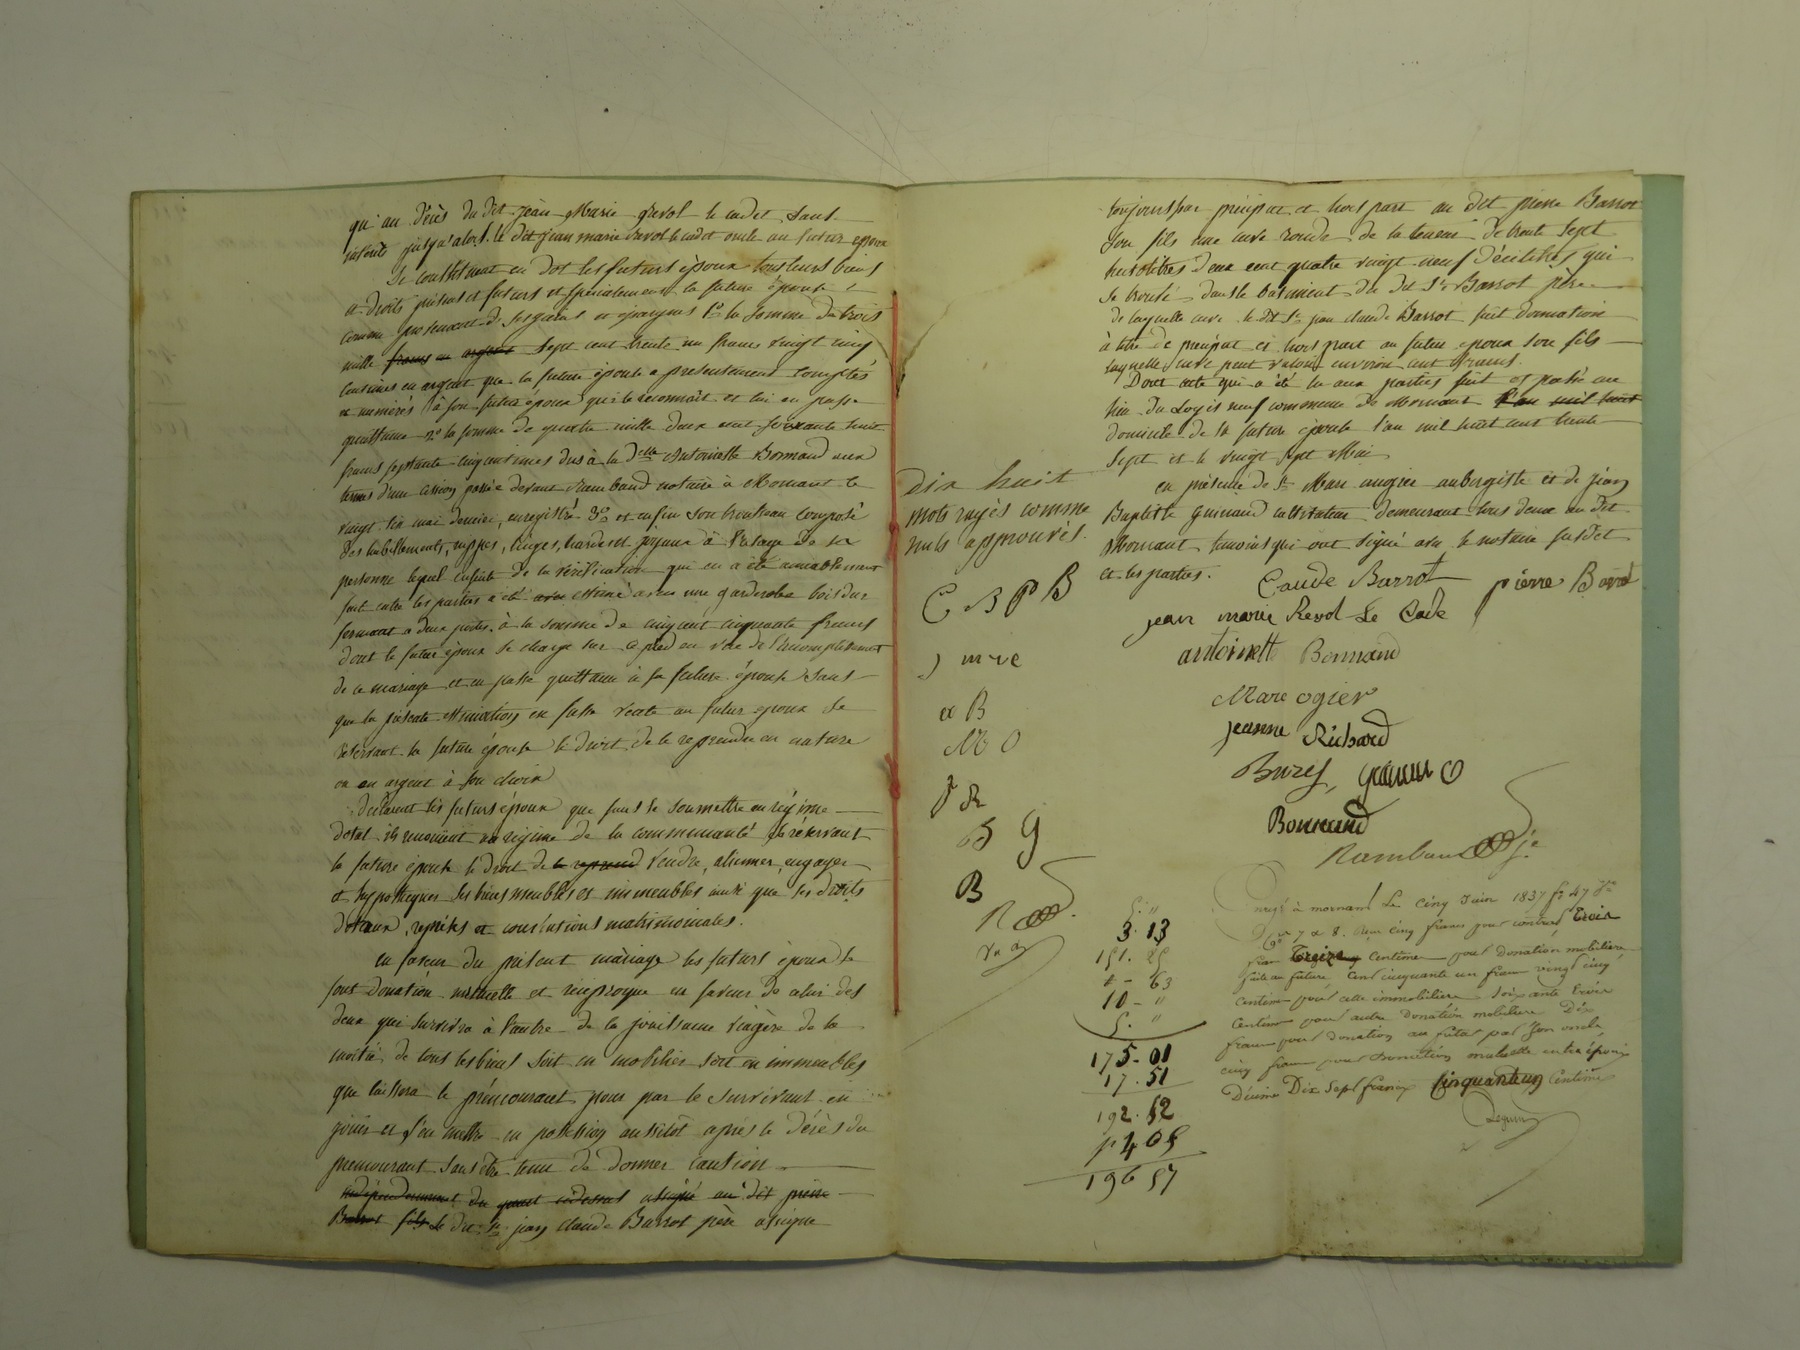 qu'au décès du dit jean Marie Revol le cadet sans
intérêt jusqu'alors. le dit jean marie revol le cadet oncle au futur epoux
Se constituent en dot les futurs époux tous leurs biens
et droits présents et futurs et spécialement la future épouse
comme provenant de ses gains et epargnes 1° la somme de trois
mille francs en argent sept cent trente un francs vingt cinq
centimes en argent que la future épouse a presentement comptés
et numérés à son futur époux qui le reconnait et lui en passe
quittance 2° la somme de quatre mille deux cent soixante huit
francs septante cinq centimes dus à la delle Antoinette Bonnand aux
termes d'une cession passée devant Rambaud notaire à Mornant le
vingt six mai dernier, enregistré. 3° et enfin son trousseau composé
des habillements, nippes, linges, hardes et joyaux à l'usage de sa
personne lequel ensuite de la vérification qui en a été amiablement
fait entre les parties a été avec estimé avec une garderobe bois dur
fermant a deux portes. à la somme de cinq cent cinquante francs
dont le futur époux se charge sur ce pied en vue de l'accomplissement
de ce mariage et en passe quittance à sa future épouse sans
que la présente estimation en fasse vente au futur epoux se
réservant la future épouse le droit de le reprendre en nature
ou en argent à son choix
Déclarent les futurs époux que sans se soumettre au régime
dotal ils renoncent au régime de la communauté se réservant
la future épouse le droit de le reprend vendre, aliéner, engager
et hypothéquer ses biens meubles et immeubles ainsi que ses droits
dotaux, reprises et constitutions matrimoniales.
en faveur du présent mariage les futurs époux se
font donation mutuelle et réciproque en faveur de celui des
deux qui survivra à l'autre de la jouissance viagère de la
moitié de tous les biens soit en mobilier soit en immeubles
que laissera le prémourant pour par le survivant en
jouir et s'en mettre en possession aussitôt après le décès du
premourant sans être tenu de donner caution
indépendamment du quart cidessus assigné au dit pierre
Barrot fils le dit Sr jean claude Barrot père assigne
toujours par préciput et hors part au dit pierre Barrot
son fils une cuve ronde de la teneur de trente sept
hectolitres deux cent quatre vingt neuf décilitres qui
se trouve dans le bâtiment du dit Sr Barrot père
de laquelle cuve le dit Sr jean claude Barrot fait donation
à titre de préciput et hors part au futur epoux son fils
laquelle cuve peut valoir environ cent francs.
Dont acte qui a été lu aux parties fait et passé au
lieu du Logis neuf commune de Mornant l'an mil huit
domicile de la future épouse l'an mil huit cent trente
sept et le vingt sept Mai
en présence de Sr Marc augier aubergiste et de jean
Baptiste guinand cultivateur demeurant tous deux au dit
Mornant temoins qui ont signé avec le notaire susdit
et les parties.
Claude Barrot pierre Barrot
jean marie Revol Le Cade
antoinette Bonnand
Marc ogier
jeanne Richard
Bonnand
Rambaud
dix huit
mots rayés comme
nuls approuvés.
C B P B
j m r e
a B
M O
j R
B g
B
R
Enregé à mornant Le cinq Juin 1837 fo 47 Vo
Ces 7 et 8. Reçu cinq francs pour contrat trois
franc treize centimes pour donation mobiliere
faite au futur, cent cinquante un franc vingt cinq
centimes pour celle immobilière soixante trois
centimes pour autre donation mobiliere Dix
francs pour donation au futur par son oncle
cinq francs pour Donation mutuelle entre époux
Décime Dix Sept francs cinquante un centimes
5. "
3. 13
151. 25
" - 63
10 - "
5. "
175 - 01
17. 51
192. 52
4 05
196 57